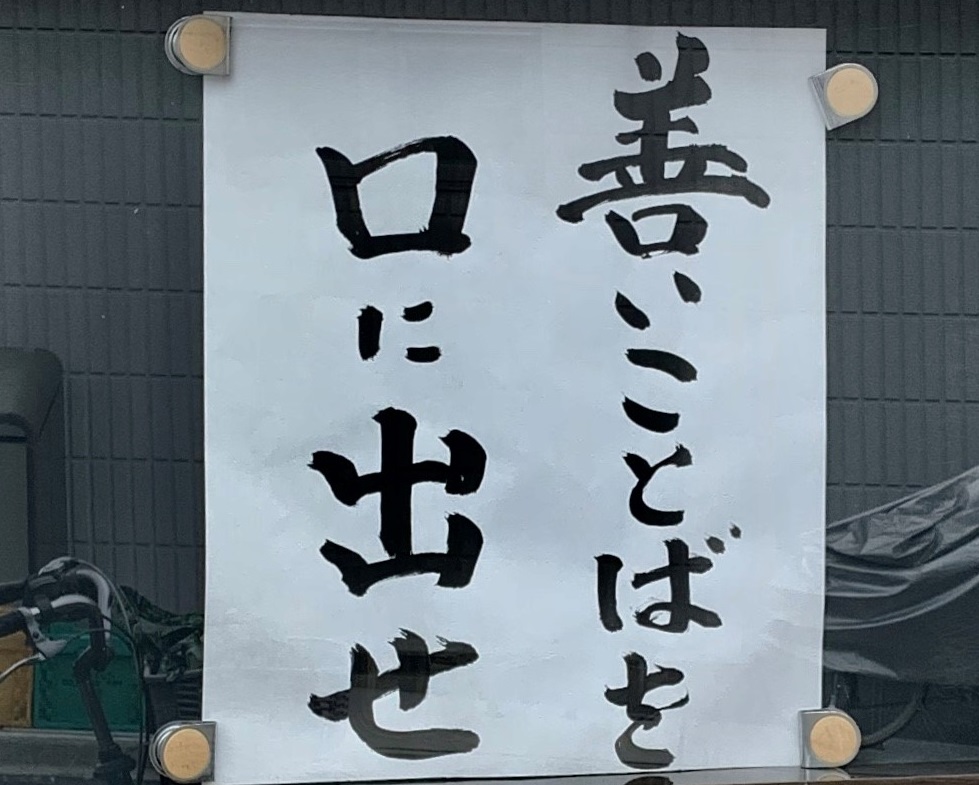 善いことばを
口に出せ